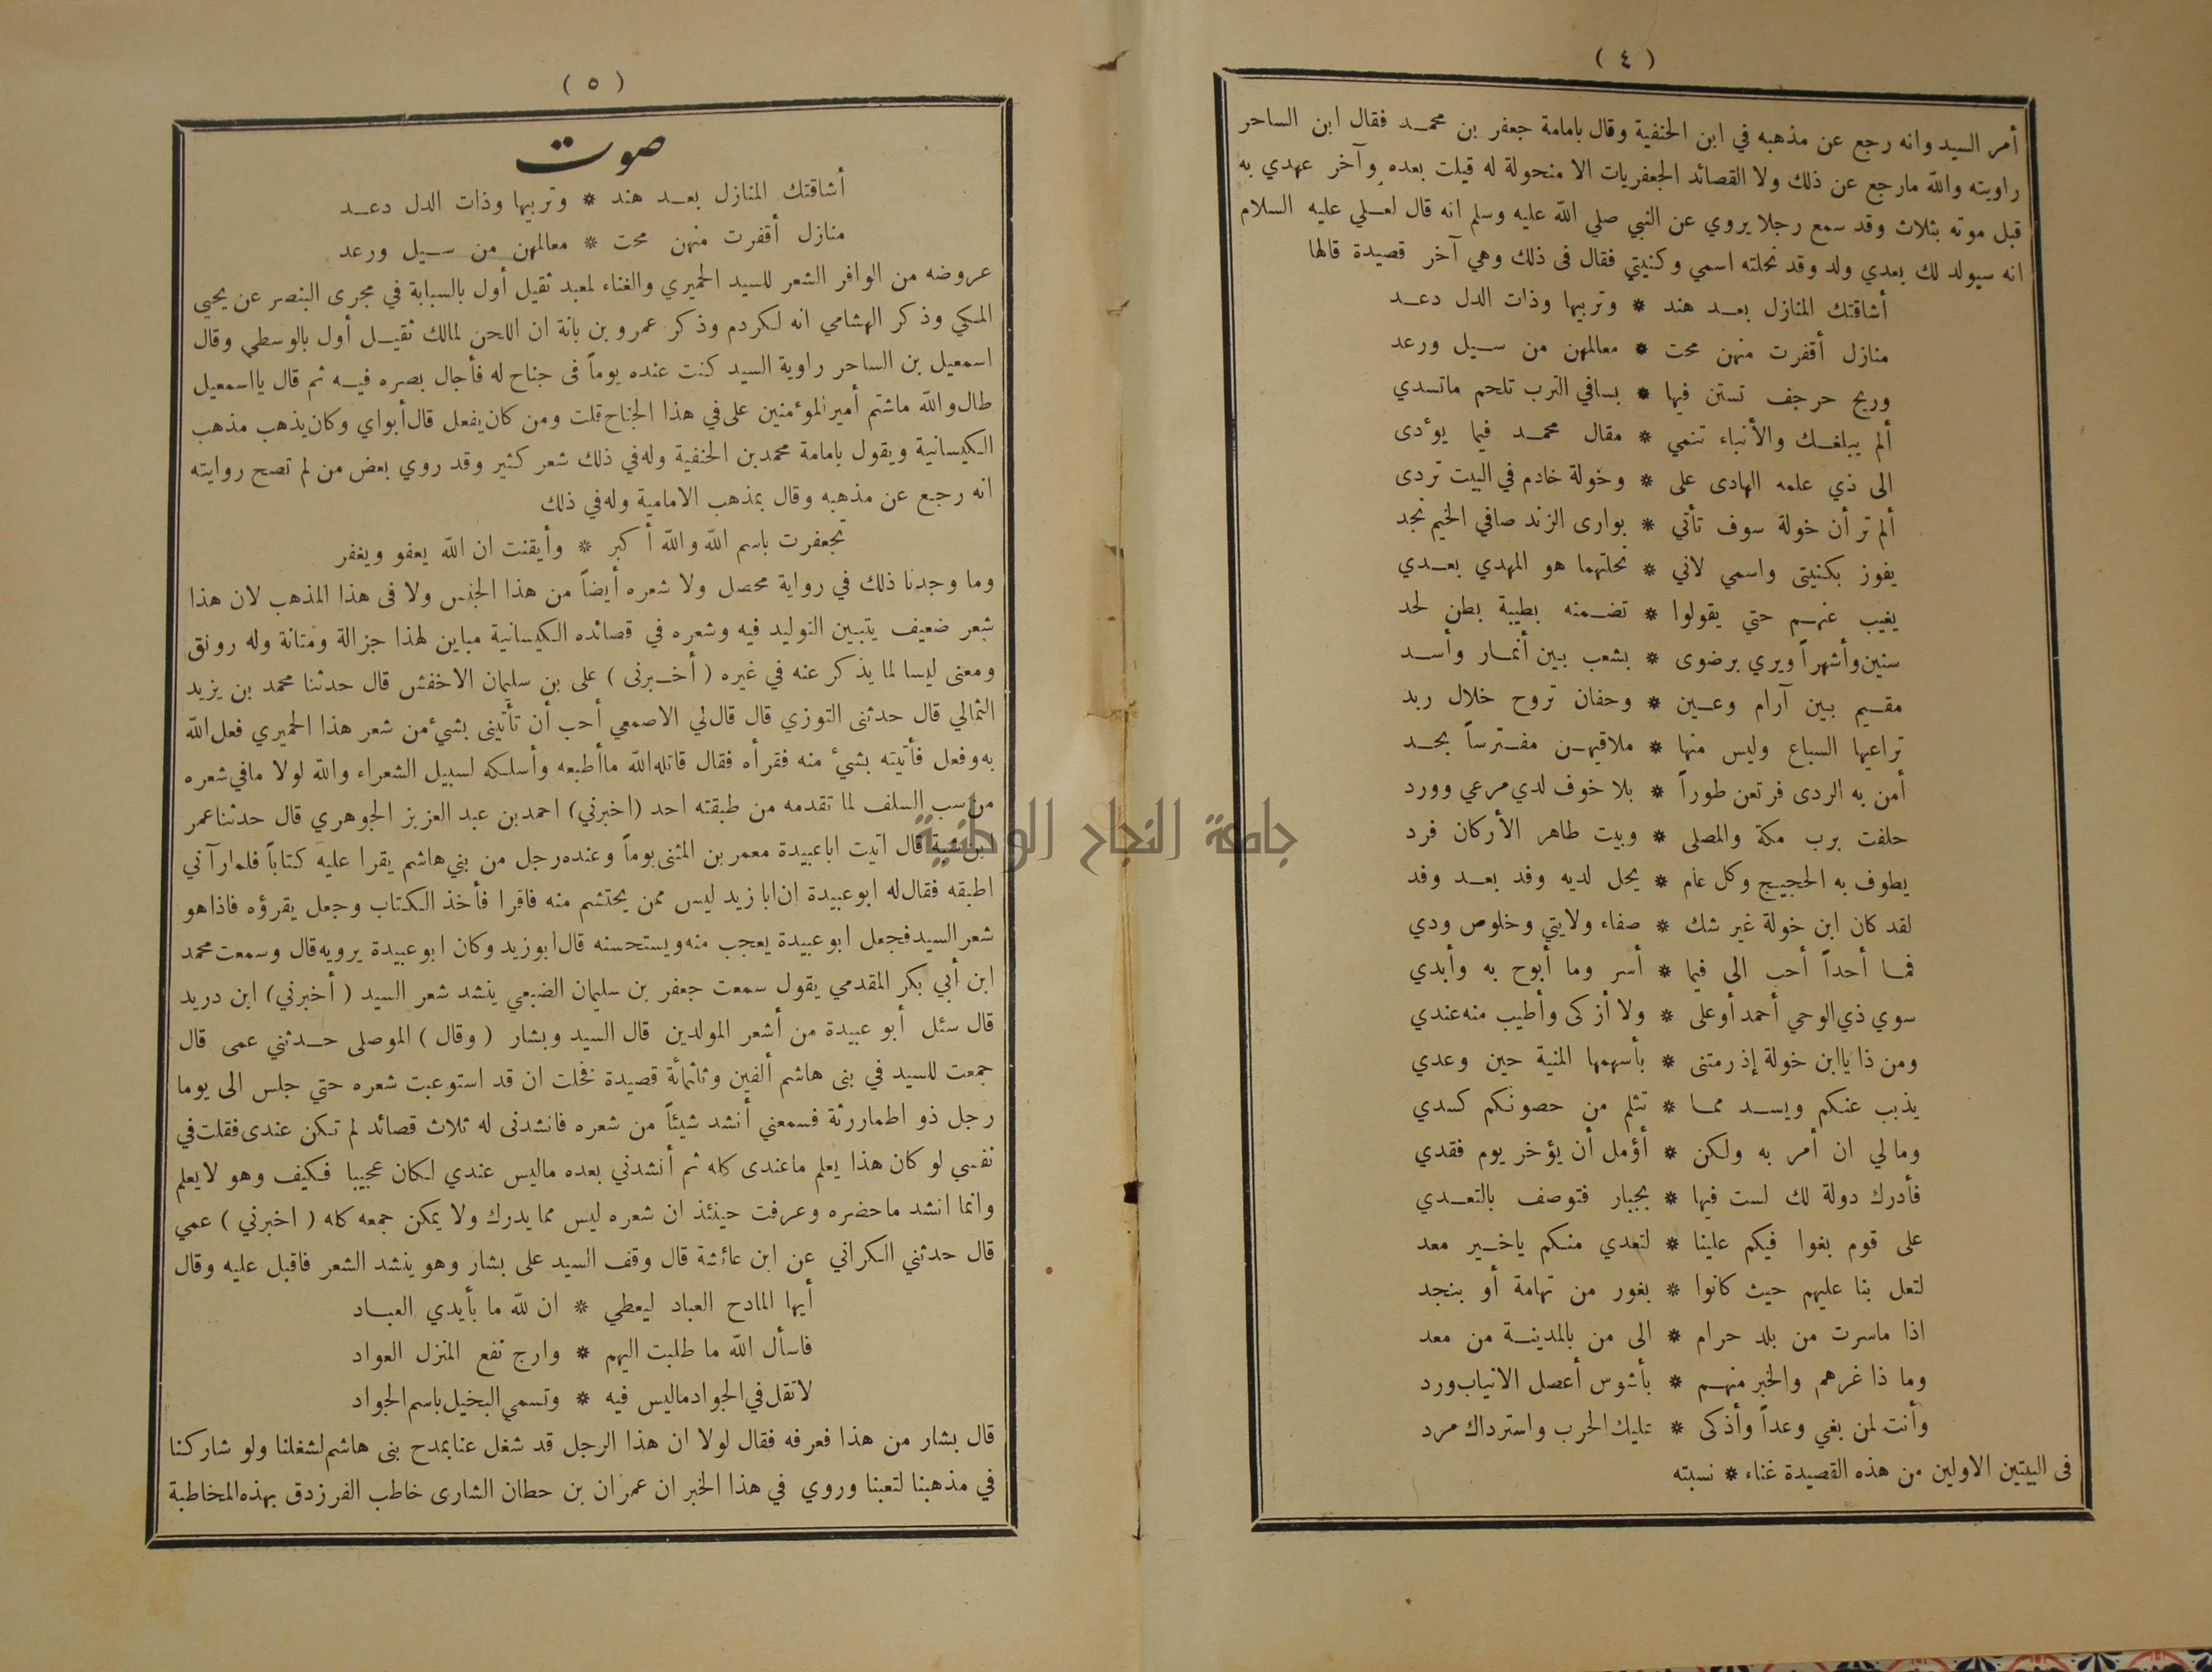 ( ٤ )
أمر السيد وانه رجع عن مذهبه في ابن الحنفية وقال بامامة جعفر بن محمد فقال ابن الساحر
راويته والله مارجع عن ذلك ولا القصائد الجعفريات الا منحولة له قيلت بعده وآخر عهدي به
قبل موته بثلاث وقد سمع رجلا يروي عن النبي صلي الله عليه وسلم انه قال لعلي عليه السلام
انه سيولد لك بعدي ولد وقد نحلته اسمي وكنيتي فقال فى ذلك وهي آخر قصيدة قالها
أشاقتك المنازل بعد هند * وتربيها وذات الدل دعد
منازل أقفرت منهن محت * معالمهن من سيل ورعد
وريح حرجف تستن فيها * بسافي الترب تلحم ماتسدي
ألم يبلغك والأنباء تنمي * مقال محمد فيما يؤدى
الى ذي علمه الهادى على * وخولة خادم في البيت تردى
ألم تر أن خولة سوف تأتي * بوارى الزند صافي الخيم نجد
يفوز بكنيتى واسمي لاني * نحلتهما هو المهدي بعدي
يغيب عنهم حتي يقولوا * تضمنه بطيبة بطن لحد
سنين وأشهراً ويري برضوى * بشعب بين أنمار وأسد
مقيم بين آرام وعين * وحفان تروح خلال ربد
تراعيها السباع وليس منها * ملاقيهن مفترساً بحد
أمن به الردى فرتعن طوراً * بلا خوف لدي مرعي وورد
حلفت برب مكة والمصلى * وبيت طاهر الأركان فرد
يطوف به الحجيج وكل عام * يحل لديه وفد بعد وفد
لقد كان ابن خولة غير شك * صفاء ولايتي وخلوص ودي
فما أحداً أحب الى فيما * أسر وما أبوح به وأبدي
سوي ذي الوحي أحمد أو على * ولا أزكى وأطيب منه عندي
ومن ذا ياابن خولة إذ رمتنى * بأسهمها المنية حين وعدي
يذبب عنكم ويسد مما * تثلم من حصونكم كسدي
ومالي ان أمر به ولكن * أؤمل أن يؤخر يوم فقدي
فأدرك دولة لك لست فيها * بجبار فتوصف بالتعدي
على قوم بغوا فيكم علينا * لتعدي منكم ياخير معد
لتعل بنا عليهم حيث كانوا * بغور من تهامة أو بنجد
اذا ماسرت من بلد حرام * الى من بالمدينة من معد
وما ذا غرهم والخبر منهم * بأشوس أعصل الانياب ورد
وأنت لمن بغي وعداً وأذكى * عليك الحرب واسترداك مرد
فى البيتين الاولين من هذه القصيدة غناء * نسبته
( ٥ )
صوت
أشاقتك المنازل بعد هند * وتربيها وذات الدل دعد
منازل أقفرت منهن محت * معالمهن من سيل ورعد
عروضه من الوافر الشعر للسيد الحميري والغناء لمعبد ثقيل أول بالسبابة في مجرى البنصر عن يحيى
المكي وذكر الهشامي انه لكردم وذكر عمرو بن بانة ان اللحن لمالك ثقيل أول بالوسطي وقال
اسمعيل بن الساحر راوية السيد كنت عنده يوماً فى جناح له فأجال بصره فيه ثم قال يااسمعيل
طال والله ماشتم أمير المؤمنين على في هذا الجناح قلت ومن كان يفعل قال أبواي وكان يذهب مذهب
الكيسانية ويقول بامامة محمد بن الحنفية وله في ذلك شعر كثير وقد روي بعض من لم تصح روايته
انه رجع عن مذهبه وقال بمذهب الامامية وله في ذلك
تجعفرت باسم الله والله أكبر * وأيقنت ان الله يعفو ويغفر
وما وجدنا ذلك في رواية محصل ولا شعره أيضاً من هذا الجنس ولا فى هذا المذهب لان هذا
شعر ضعيف يتبين التوليد فيه وشعره في قصائده الكيسانية مباين لهذا جزالة ومتانة وله رونق
ومعنى ليسا لما يذكر عنه في غيره ( أخبرنى ) على بن سليمان الاخفش قال حدثنا محمد بن يزيد
الثمالي قال حدثنى التوزي قال قال لي الاصمعي أحب أن تأتينى بشئ من شعر هذا الحميري فعل الله
به وفعل فأتيته بشئ منه فقرأه فقال قاتله الله ماأطبعه وأسلكه لسبيل الشعراء والله لولا مافي شعره
من سب السلف لما تقدمه من طبقته احد (اخبرني) احمد بن عبد العزيز الجوهري قال حدثنا عمر
بن شبة قال اتيت اباعبيدة معمر بن المثنى يوماً وعنده رجل من بني هاشم يقرا عليه كتاباً فلما رآني
اطبقه فقال له ابوعبيدة ان ابا زيد ليس ممن يحتشم منه فاقرا فأخذ الكتاب وجعل يقرؤه فاذا هو
شعر السيد فجعل ابو عبيدة يعجب منه ويستحسنه قال ابو زيد وكان ابو عبيدة يرويه قال وسمعت محمد
ابن أبي بكر المقدمي يقول سمعت جعفر بن سليمان الضبعي ينشد شعر السيد ( أخبرني) ابن دريد
قال سئل أبو عبيدة من أشعر المولدين قال السيد وبشار ( وقال ) الموصلى حدثني عمى قال
جمعت للسيد في بنى هاشم ألفين وثلثمائة قصيدة فخلت ان قد استوعبت شعره حتي جلس الى يوما
رجل ذو اطمار رثة فسمعني أنشد شيئاً من شعره فانشدنى له ثلاث قصائد لم تكن عندى فقلت في
نفسي لو كان هذا يعلم ماعندى كله ثم أنشدني بعده ماليس عندي لكان عجيبا فكيف وهو لايعلم
وانما انشد ماحضره وعرفت حينئذ ان شعره ليس مما يدرك ولا يمكن جمعه كله ( اخبرني ) عمي
قال حدثني الكراني عن ابن عائشة قال وقف السيد على بشار وهو ينشد الشعر فاقبل عليه وقال
أيها المادح العباد ليعطي * ان لله ما بأيدي العباد
فاسأل الله ما طلبت اليهم * وارج نفع المنزل العواد
لاتقل في الجواد ماليس فيه * وتسمي البخيل باسم الجواد
قال بشار من هذا فعرفه فقال لولا ان هذا الرجل قد شغل عنا بمدح بنى هاشم لشغلنا ولو شاركنا
في مذهبنا لتعبنا وروي في هذا الخبر ان عمران بن حطان الشارى خاطب الفرزدق بهذه المخاطبة
جامعة النجاح الوطنية